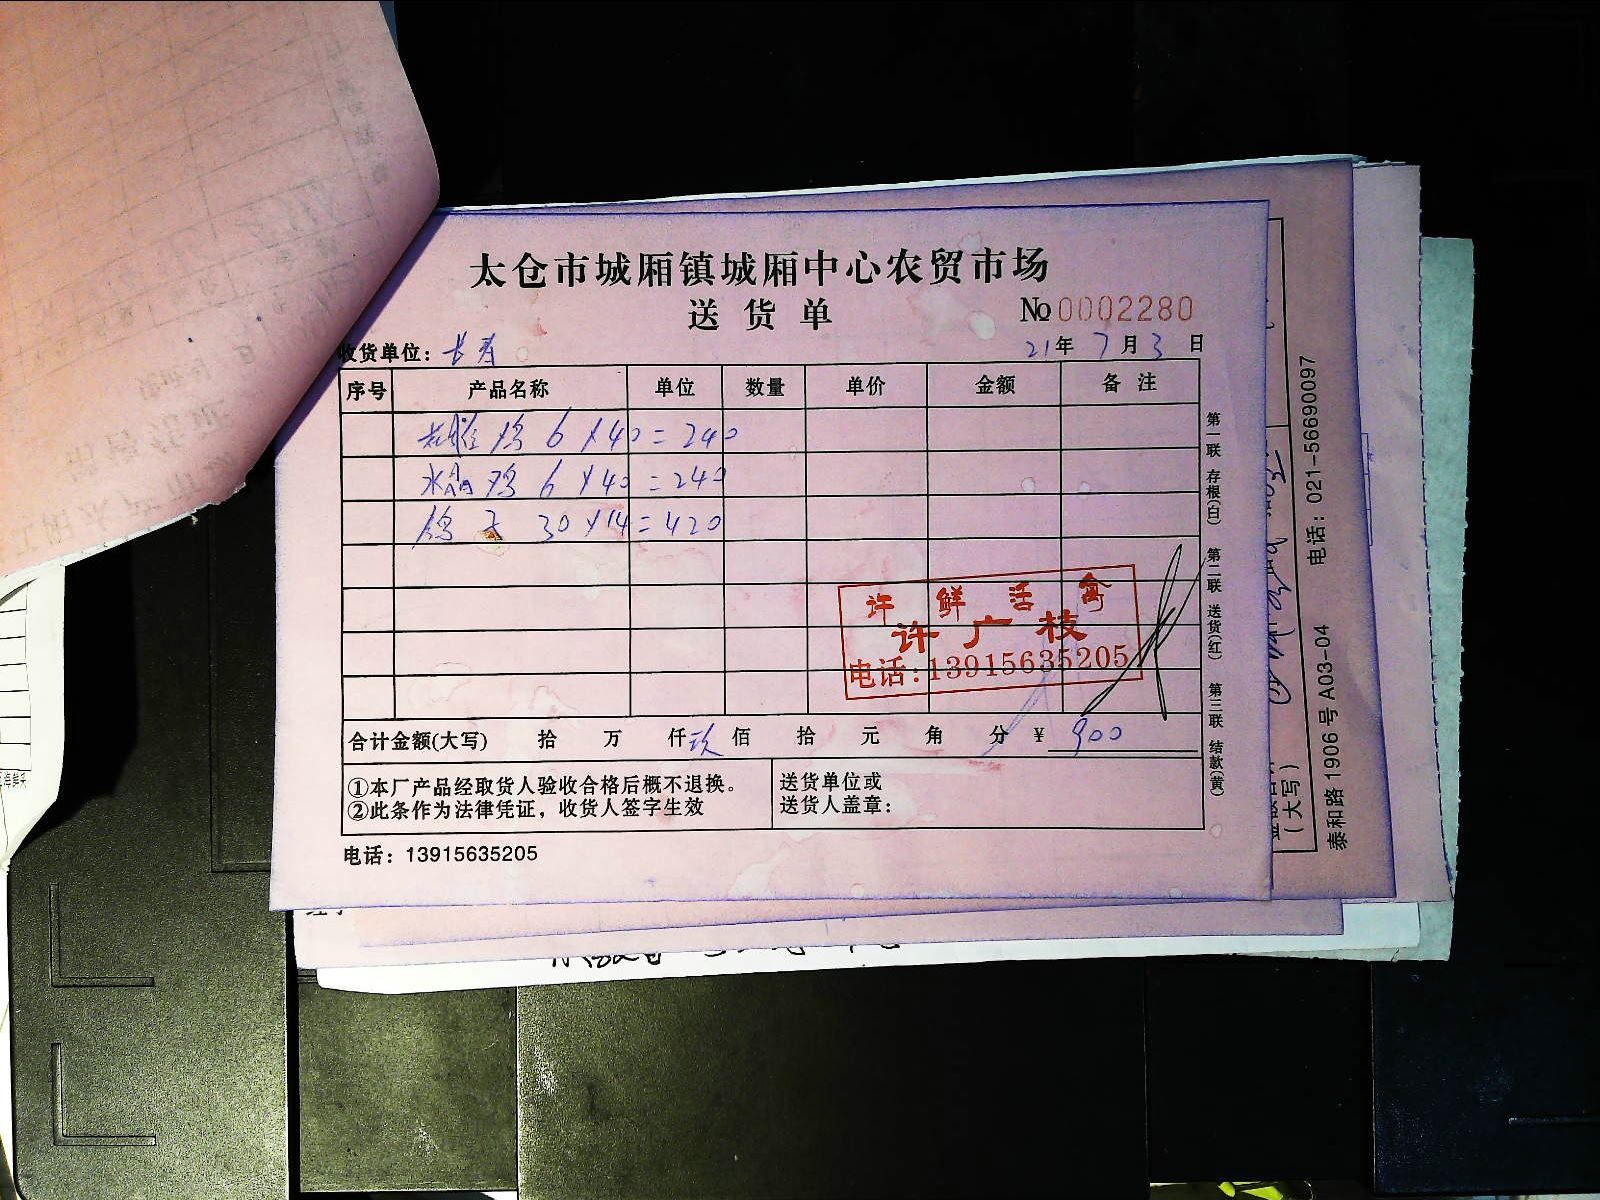 太仓市城厢镇城厢中心农贸市场
送货单 No 0002280
收货单位：长寿 21年7月3日
序号 产品名称 单位 数量 单价 金额 备注
老雌鸡 6×40=240
水晶鸡 6×40=240
鸽子 30×14=420
许鲜活禽
许广枝
电话:13915635205
合计金额(大写) 拾 万 仟 玖佰 拾 元 角 分 ¥ 900
①本厂产品经取货人验收合格后概不退换。
②此条作为法律凭证，收货人签字生效
送货单位或
送货人盖章：
电话：13915635205
第一联 存根(白) 第二联 送货(红) 第三联 结款(黄)
(大写)
泰和路1906号A03-04 电话：021-56690097